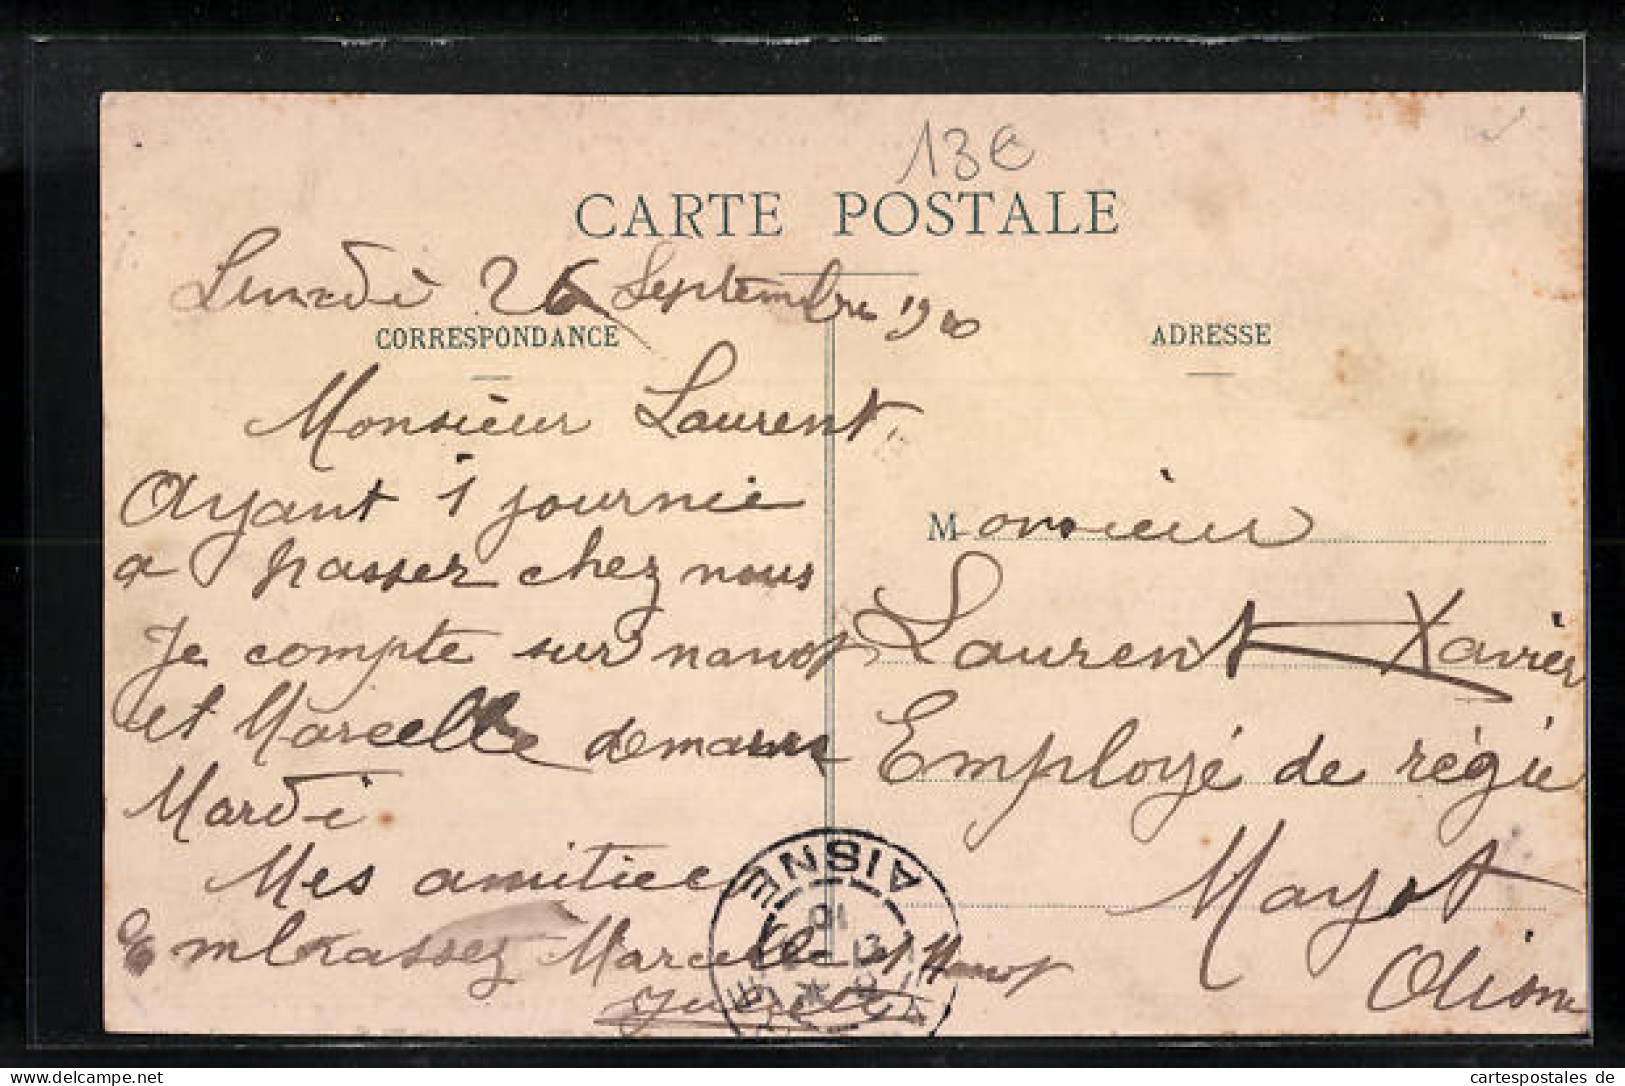 13€
CARTE POSTALE
Lundi 26 Septembre 1910
CORRESPONDANCE
Monsieur Laurent
Ayant 1 journée
a passer chez nous
Je compte sur nanot
et Marcelle demain
Mardi
Mes amitiée
Embrassez Marcelle et Nanot
Juliette
ADRESSE
Monsieur
Laurent Xavier
Employé de régie
Mayot
Aisne
AISNE
10
cartespostales de